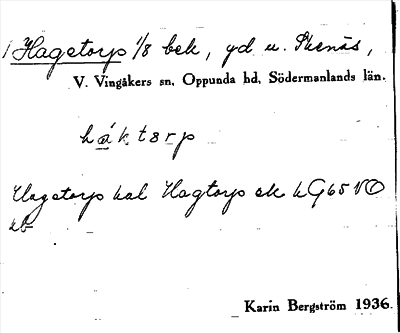 Hagetorp 1/8 bek, yd u. Stenäs,
V. Vingåkers sn. Oppunda hd. Södermanlands län.
háktɜrp
Hagetorp kal Hagtorp ek h G65 NO
Karin Bergström 1936.